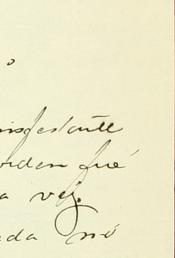 o
nifestante
orden fué
a vez.
ada nó